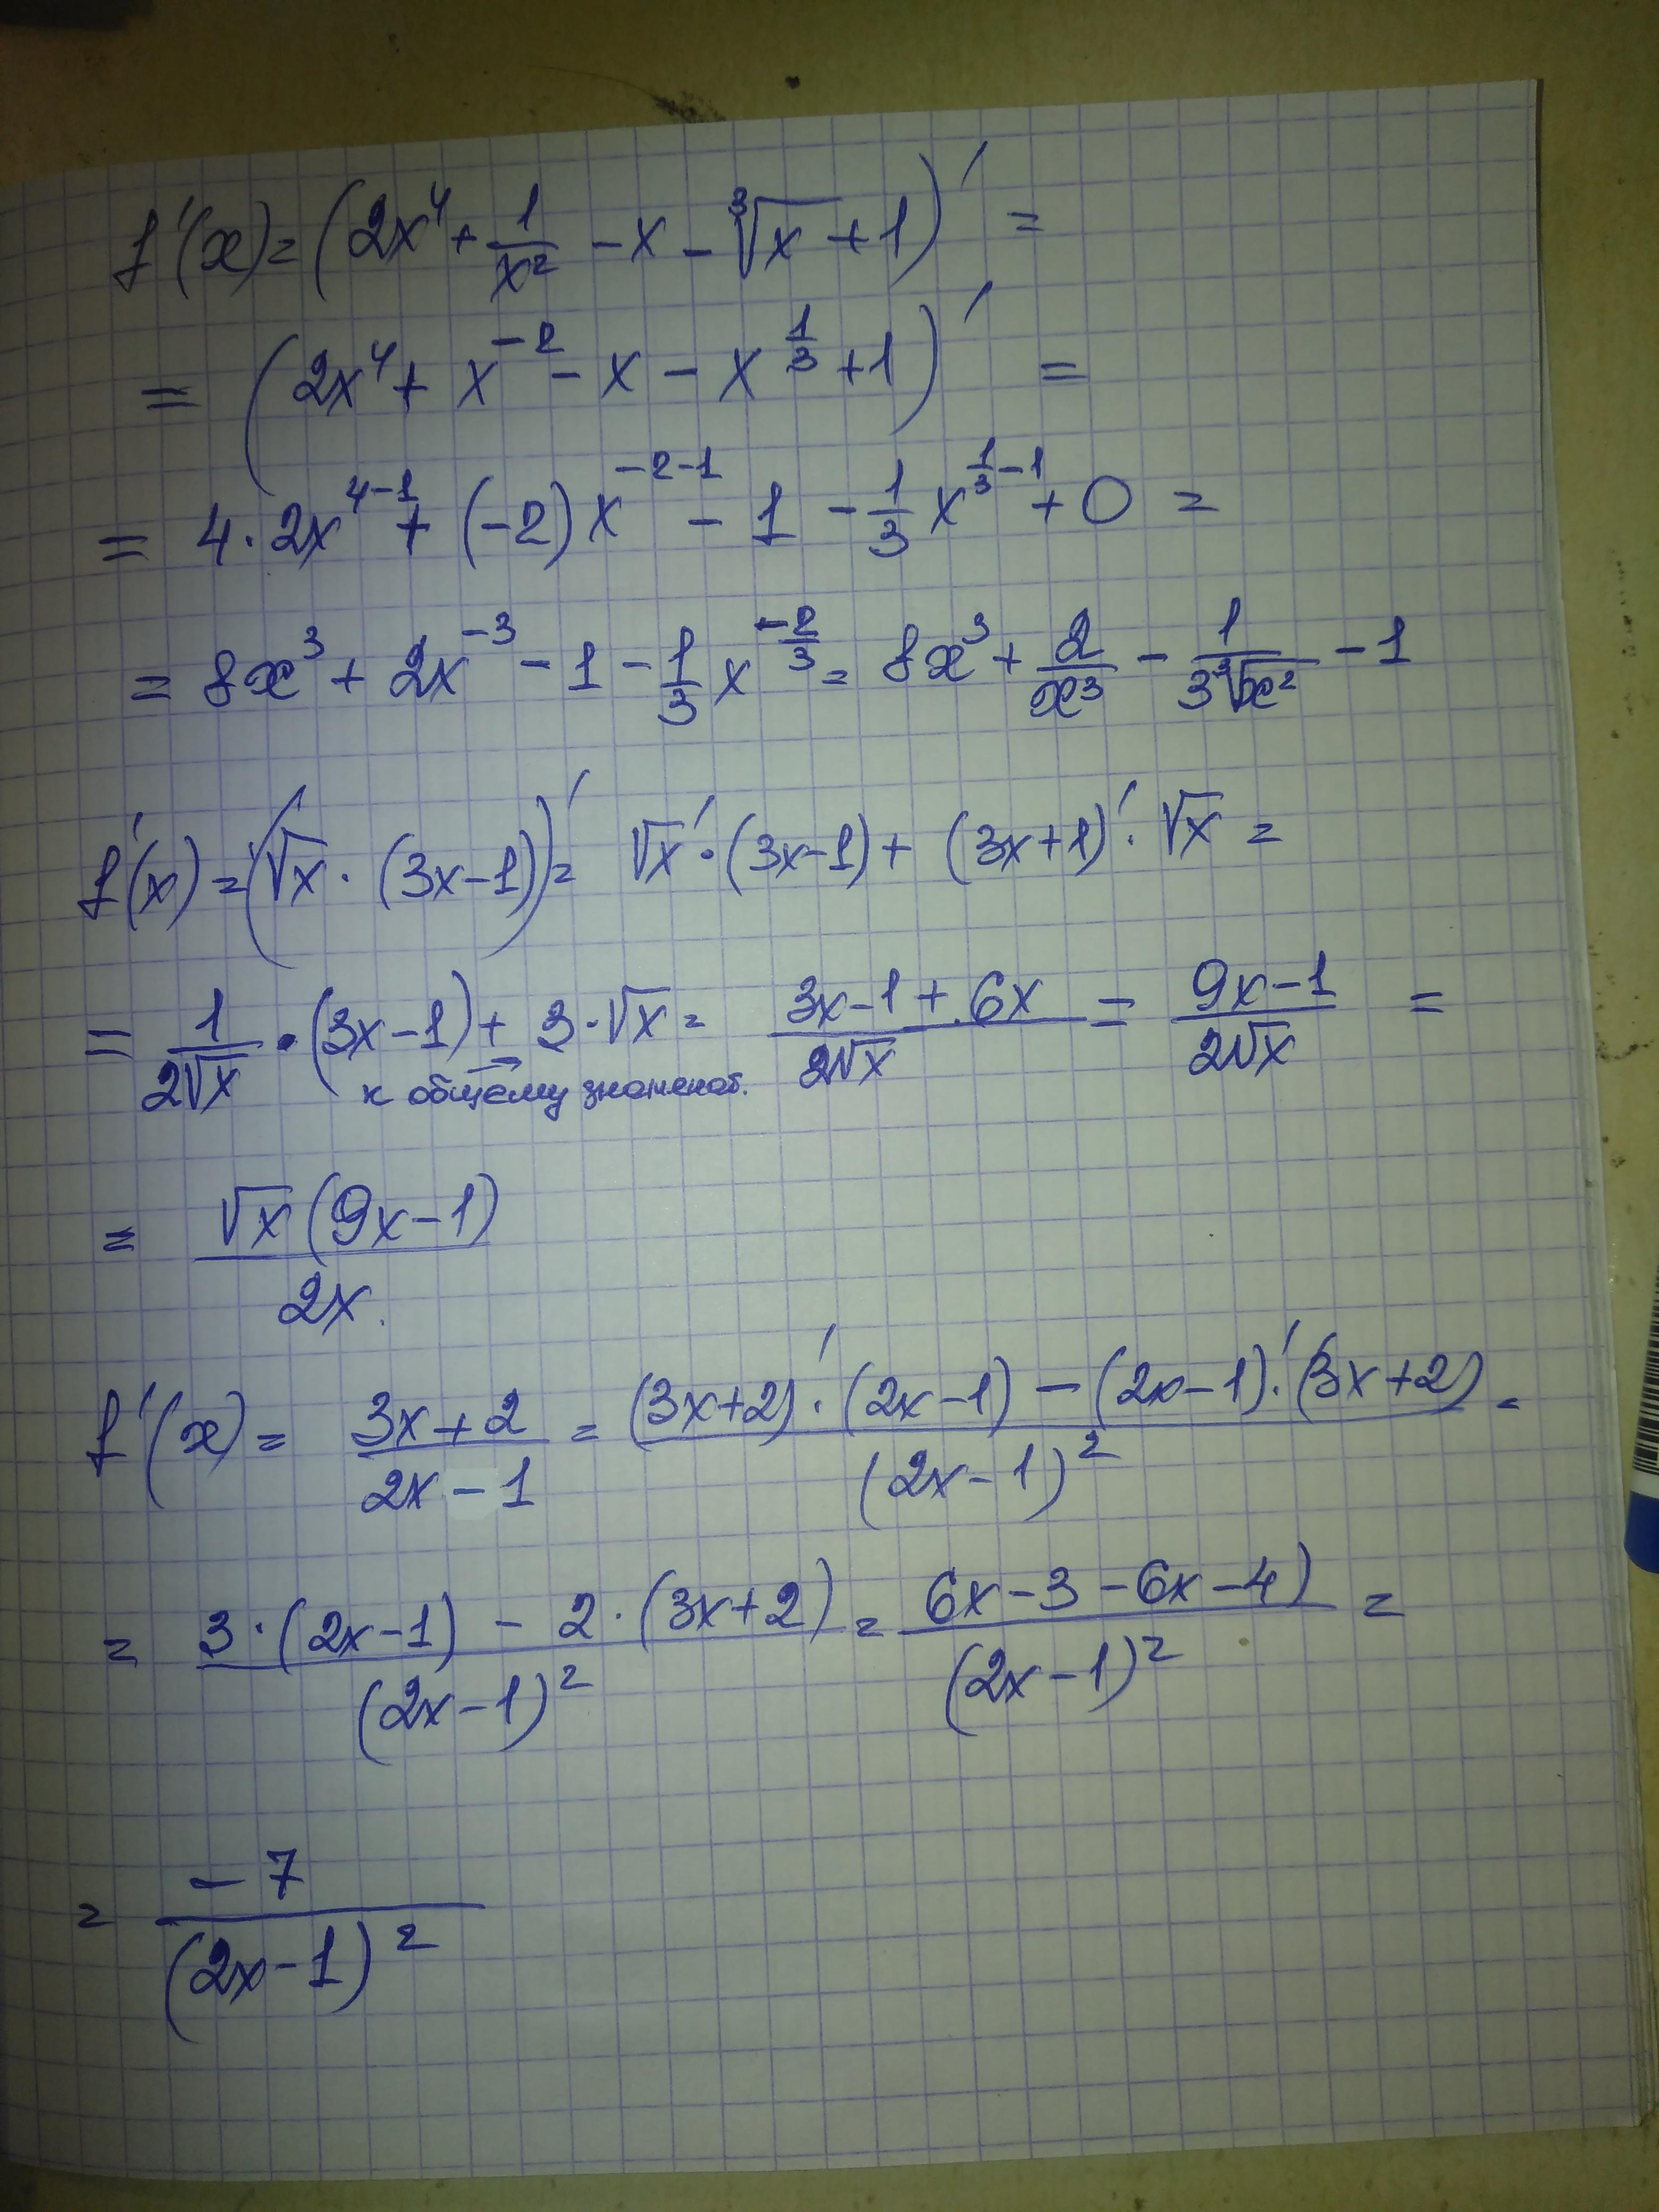 f'(x)=(2x⁴+1/x²-x-∛x+1)'=
=(2x⁴+x⁻²-x-x^(1/3)+1)'=
=4·2x^(4-1)+(-2)x^(-2-1)-1-1/3x^(1/3-1)+0=
=8x³+2x⁻³-1-1/3x^(-2/3)=8x³+2/x³-1/(3∛x²)-1
f'(x)=(√x·(3x-1))'=√x'·(3x-1)+(3x+1)'·√x=
=1/(2√x)·(3x-1)+3·√x=(3x-1+6x)/(2√x)=(9x-1)/(2√x)=
к общему знаменат.
=√x(9x-1)/(2x)
f'(x)=(3x+2)/(2x-1)=((3x+2)'·(2x-1)-(2x-1)'·(3x+2))/(2x-1)²=
=(3·(2x-1)-2·(3x+2))/(2x-1)²=(6x-3-6x-4))/(2x-1)²=
=-7/(2x-1)²